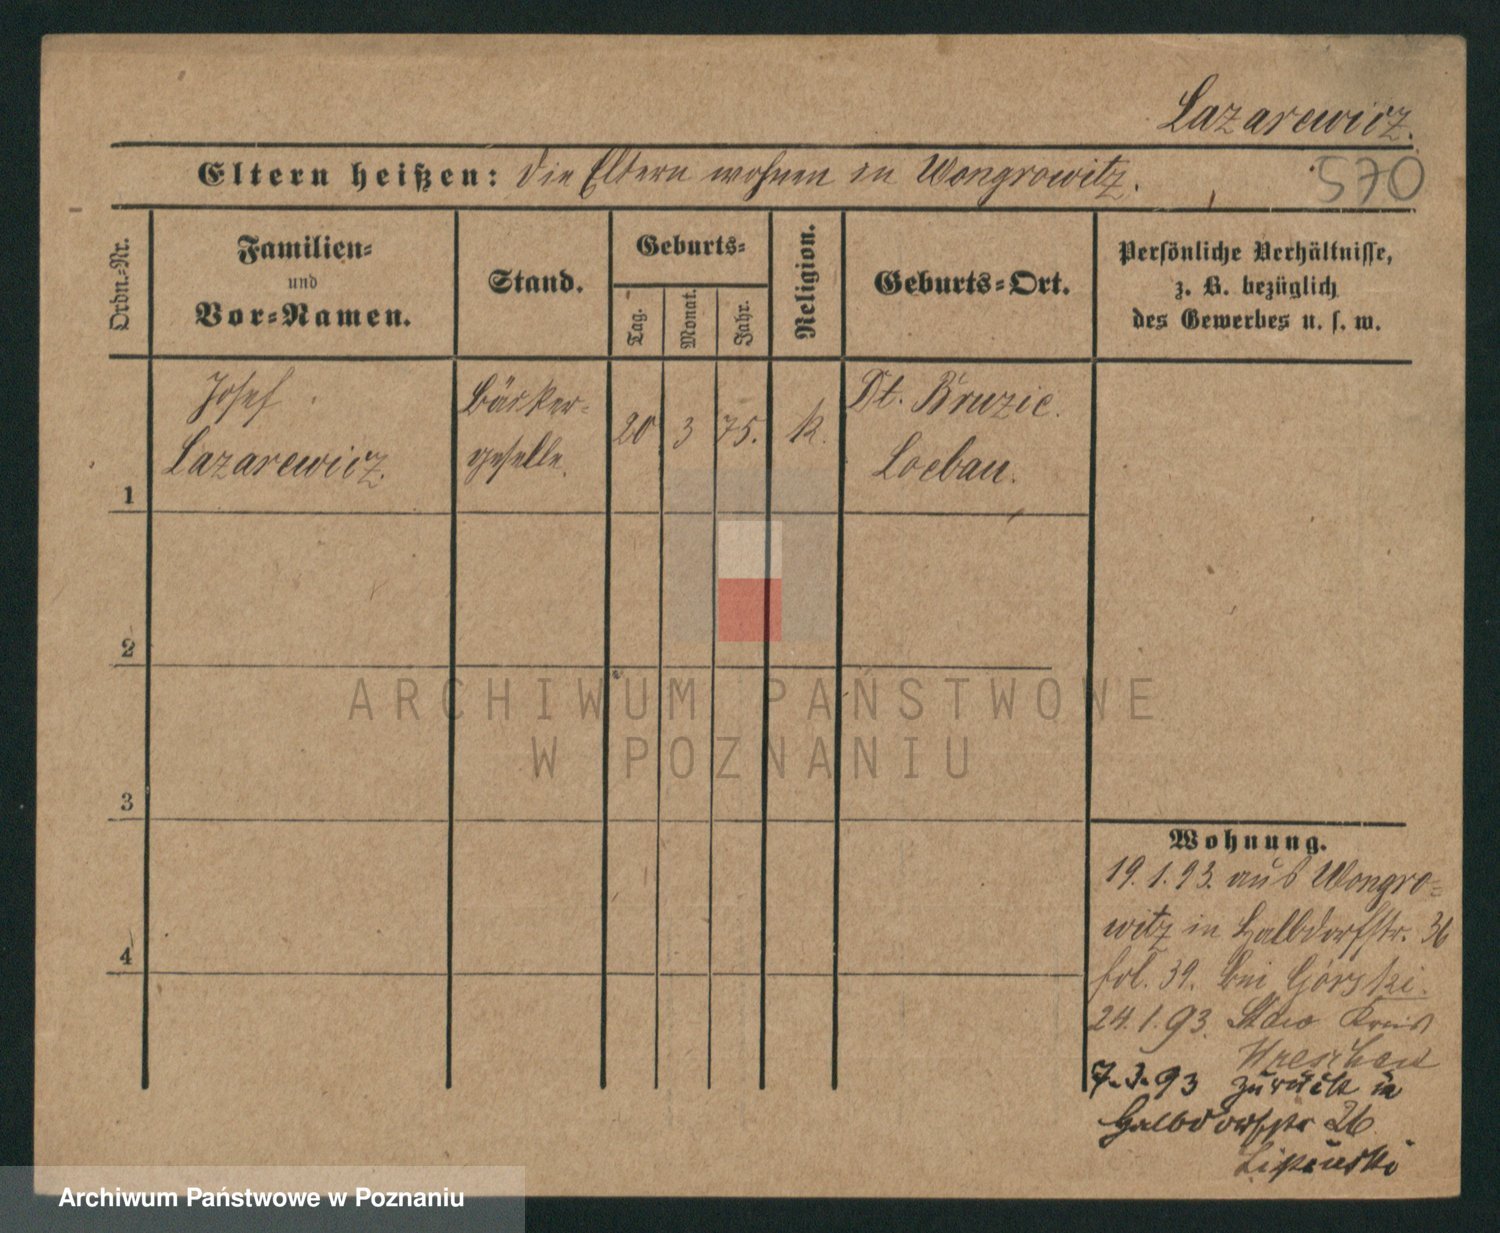 Lazarewicz.
570
Eltern heißen: die Eltern wohnen in Wongrowitz.
Ordn.-Nr.
Familien-
und
Vor-Namen.
Stand.
Geburts-
Tag.
Monat.
Jahr.
Religion.
Geburts-Ort.
Persönliche Verhältnisse,
z. B. bezüglich
des Gewerbes u. s. w.
1
Josef
Lazarewicz.
Bäcker-
geselle.
20
3
75.
k.
Dt. Bruzic.
Loebau.
2
3
4
Wohnung.
19.1.93. aus Wongro-
witz in Halbdorfstr. 36
fol. 39. bei Górski.
24.1.93. Kreis
Wreschen
7.3.93 zurück in
Halbdorfstr 26
Lipinski
ARCHIWUM PAŃSTWOWE
W POZNANIU
Archiwum Państwowe w Poznaniu